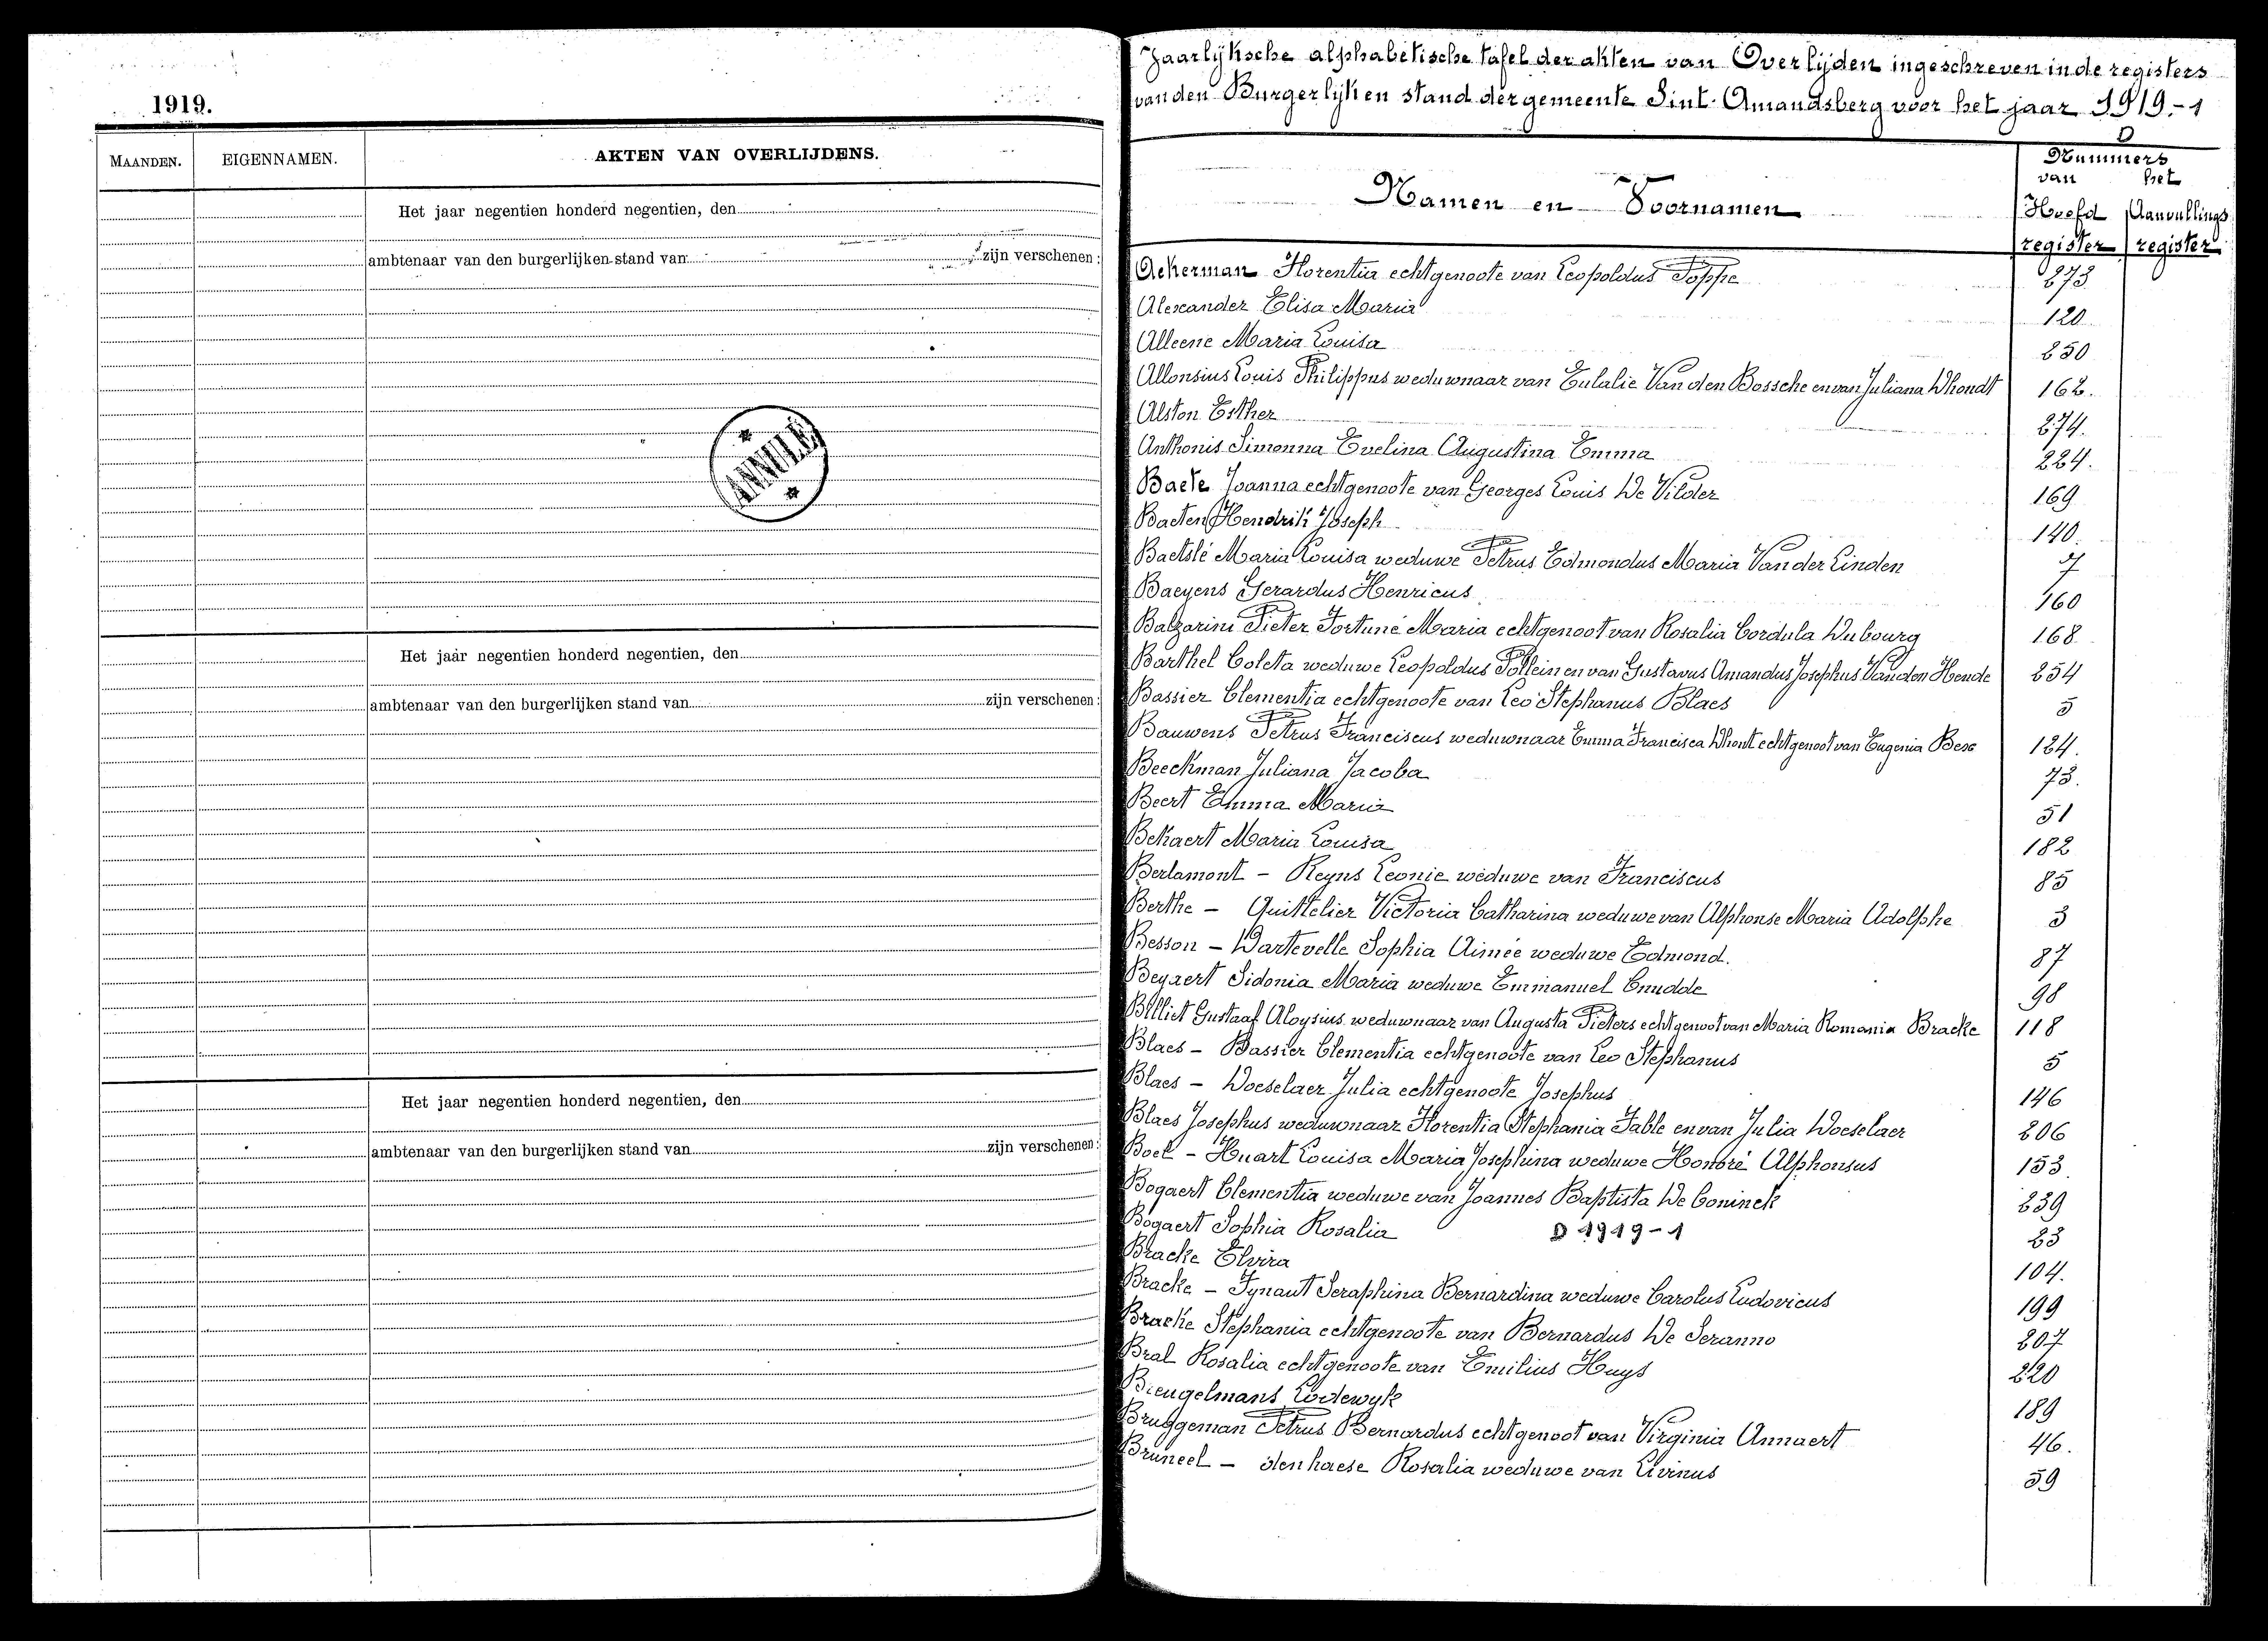 1919.
MAANDEN. EIGENNAMEN. AKTEN VAN OVERLIJDENS.
Het jaar negentien honderd negentien, den
ambtenaar van den burgerlijken stand van zijn verschenen:
ANNULÉ
Het jaar negentien honderd negentien, den
ambtenaar van den burgerlijken stand van zijn verschenen:
Het jaar negentien honderd negentien, den
ambtenaar van den burgerlijken stand van zijn verschenen:
Jaarlijksche alphabetische tafel der akten van Overlijden ingeschreven in de registers
van den Burgerlijken stand der gemeente Sint Amandsberg voor het jaar 1919.-1
D
Nummers
van het
Namen en Voornamen Hoofd Aanvullings
register register
Ackerman Florentia echtgenoote van Leopoldus Poppe 273
Alexander Elisa Maria 120
Alleene Maria Louisa 250
Allonsius Louis Philippus weduwnaar van Eulalie Van den Bossche en van Juliana Dhondt 162.
Alston Esther 274.
Anthonis Simonna Evelina Augustina Emma 224.
Baete Joanna echtgenoote van Georges Louis De Vilder 169
Baeten Hendrik Joseph 140.
Baetslé Maria Louisa weduwe Petrus Edmondus Maria Van der Linden 7
Baeyens Gerardus Henricus 160
Balzarini Pieter Fortuné Maria echtgenoot van Rosalia Cordula Dubourg 168
Barthel Coleta weduwe Leopoldus Pollein en van Gustavus Amandus Josephus Van den Hende 254
Bassier Clementia echtgenoote van Leo Stephanus Blaes 5
Bauwens Petrus Franciscus weduwnaar Emma Francisca Dhont echtgenoot van Eugenia 124.
Beeckman Juliana Jacoba 73.
Beert Emma Maria 51
Bekaert Maria Louisa 182
Berlamont - Reyns Leonie weduwe van Franciscus 85
Berthe - Quittelier Victoria Catharina weduwe van Alphonse Maria Adolphe 3
Besson - Dartevelle Sophia Aimée weduwe Edmond. 87
Beyaert Sidonia Maria weduwe Emmanuel Cnudde 98
Billiet Gustaaf Aloysius weduwnaar van Augusta Pieters echtgenoot van Maria Romania Bracke 118
Blaes - Bassier Clementia echtgenoote van Leo Stephanus 5
Blaes - Doeselaer Julia echtgenoote Josephus 146
Blaes Josephus weduwnaar Florentia Stephania Fable en van Julia Doeselaer 206
Boel - Huart Louisa Maria Josephina weduwe Honoré Alphonsus 153.
Bogaert Clementia weduwe van Joannes Baptista De Coninck 239
Bogaert Sophia Rosalia D 1919-1 23
Bracke Elvira 104.
Bracke - Tynaut Seraphina Bernardina weduwe Carolus Ludovicus 199
Bracke Stephania echtgenoote van Bernardus De Seranno 207
Bral Rosalia echtgenoote van Emilius Huys 220
Breugelmans Lodewyk 189
Bruggeman Petrus Bernardus echtgenoot van Virginia Annaert 46.
Bruneel - denhaese Rosalia weduwe van Livinus 59